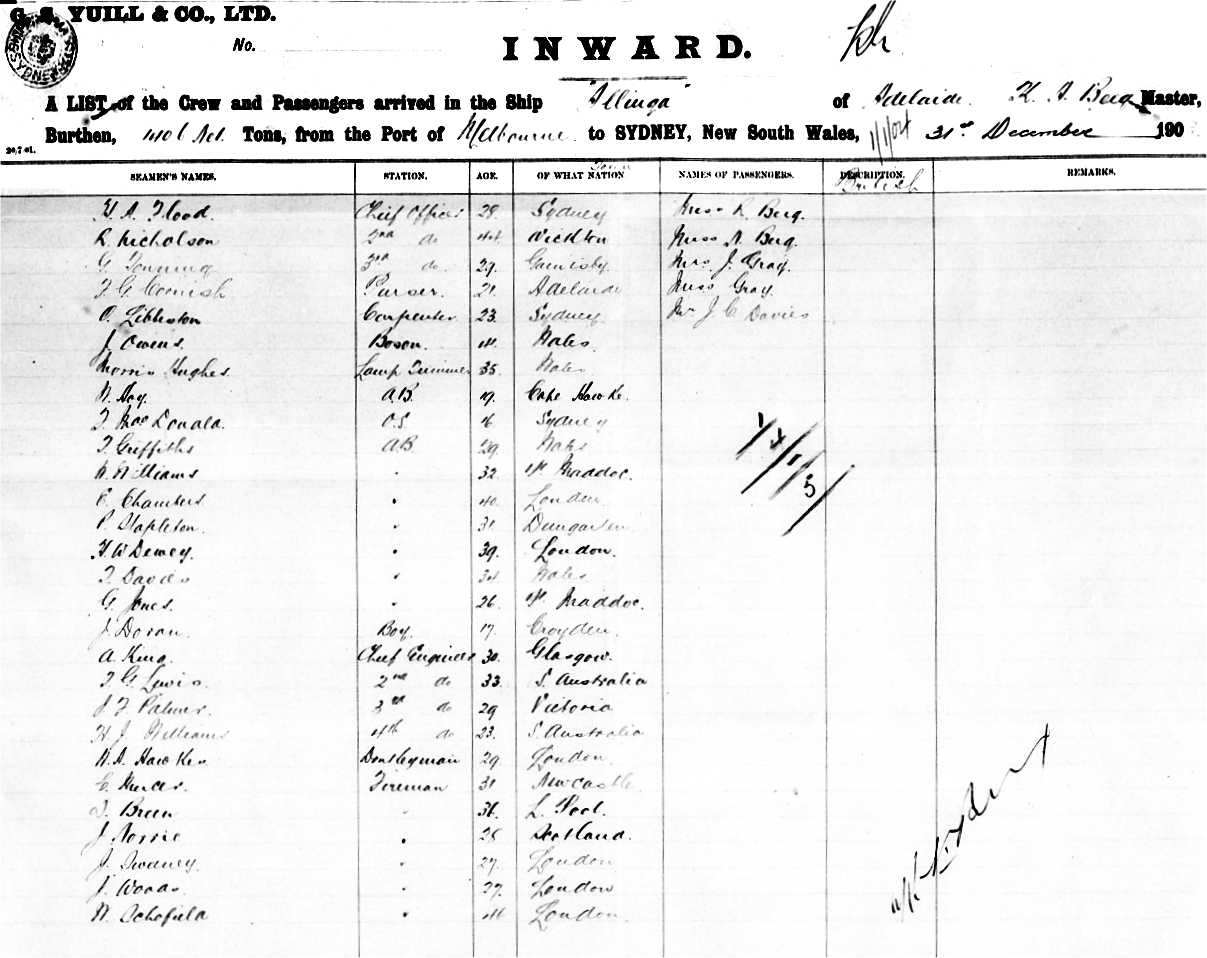 G. S. YUILL & CO., LTD.
No.
INWARD.
A LIST of the Crew and Passengers arrived in the Ship "Allinga" of Adelaide K. A. Berg Master,
Burthen, 1406 Net. Tons, from the Port of Melbourne to SYDNEY, New South Wales, 1/1/04 31st December 190
20,7 01.
SEAMEN'S NAMES. STATION. AGE. OF WHAT NATION Town NAMES OF PASSENGERS. DESCRIPTION. REMARKS.
British
H. A. Flood. Chief Officer 28. Sydney Miss R. Berg.
R. Nicholson 2nd do 44 Miss A. Berg.
G. 3rd do. 29. Mrs J. Gray.
F. G. Cornish Purser. 21. Adelaide Miss Gray.
O. Carpenter 23. Sydney. Mr J. C. Davies
J. Owens Boson. Wales.
Morris Hughes. Lamp Trimmer 35. Wales
W. Hoy. A.B. 19. Cape Hawke.
T. Mac Donald. O.S. 16 Sydney
T. Griffiths A.B. 29. Wales
W. Williams " 32. Pt. Maddoc.
Chambers. " 40. London
P. Stapleton. " 31. Dungarven
H. W. Dewey. " 39. London.
T. Davies " 34 Wales
G. Jones. " 26. Pt. Maddoc.
J. Doran. Boy. 17. Croyden.
A. King. Chief Engineer 30. Glasgow.
T. G. Lewis. 2nd do 33. S. Australia
J. F. Palmer. 3rd do 29 Victoria
H. J. Williams 4th do 23. S. Australia
W. A. Hawkes Donkeyman 29. London.
E. Fireman 31 Newcastle
T. Breen " 36. L. Pool.
J. Norrie " 28 Scotland.
J. Swaney. " 27. London
J. Woods. " 27. London
W. Schofield " London.
1/4/1/5